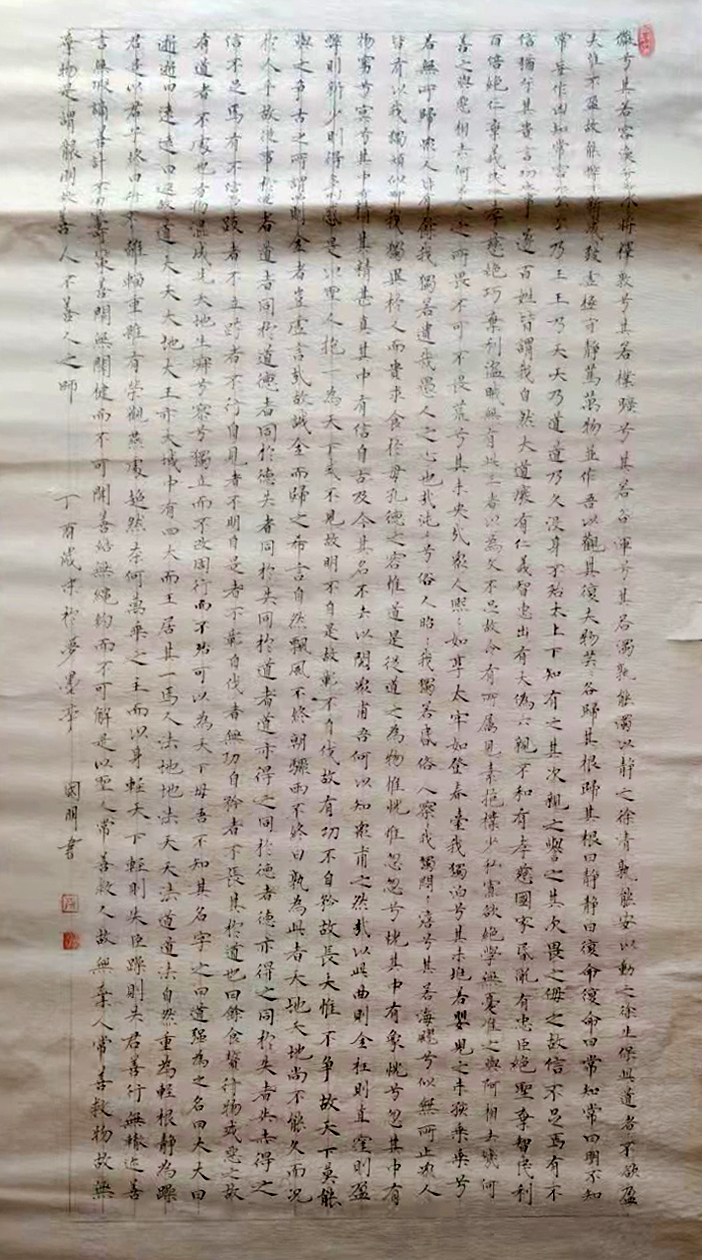 儼兮其若容渙兮若冰將釋敦兮其若樸曠兮其若谷渾兮其若濁孰能濁以靜之徐清孰能安以動之徐生保此道者不欲盈
夫惟不盈故能弊不新成致虛極守靜篤萬物並作吾以觀其復夫物芸芸各歸其根歸其根曰靜靜曰復命復命曰常知常曰明不知
常妄作凶知常容容乃公公乃王王乃天天乃道道乃久沒身不殆太上下知有之其次親之譽之其次畏之侮之故信不足焉有不
信猶兮其貴言功成事遂百姓皆謂我自然大道廢有仁義智惠出有大偽六親不和有孝慈國家昏亂有忠臣絕聖棄智民利
百倍絕仁棄義民復孝慈絕巧棄利盜賊無有此三者以為文不足故令有所屬見素抱樸少私寡欲絕學無憂唯之與阿相去幾何
善之與惡相去何若人之所畏不可不畏荒兮其未央哉衆人熙熙如享太牢如登春臺我獨泊兮其未兆若嬰兒之未孩乘乘兮
若無所歸衆人皆有餘我獨若遺我愚人之心也哉沌沌兮俗人昭昭我獨若昏俗人察察我獨悶悶澹兮其若海飂兮似無所止衆人
皆有以我獨頑似鄙我獨異於人而貴求食於母孔德之容惟道是從道之為物惟恍惟忽忽兮恍其中有象恍兮忽其中有
物窈兮冥兮其中有精其精甚真其中有信自古及今其名不去以閱衆甫吾何以知衆甫之然哉以此曲則全枉則直窪則盈
弊則新少則得多則惑是以聖人抱一為天下式不自見故明不自是故彰不自伐故有功不自矜故長夫惟不爭故天下莫能
與之爭古之所謂曲則全者豈虛言哉故誠全而歸之希言自然飄風不終朝驟雨不終日孰為此者天地天地尚不能久而況
於人乎故從事於道者道者同於道德者同於德失者同於失同於道者道亦得之同於德者德亦得之同於失者失亦得之
信不足焉有不信焉跂者不立跨者不行自見者不明自是者不彰自伐者無功自矜者不長其於道也曰餘食贅行物或惡之故
有道者不處也有物混成先天地生寂兮寥兮獨立而不改周行而不殆可以為天下母吾不知其名字之曰道強為之名曰大大曰
逝逝曰遠遠曰返故道大天大地大王亦大域中有四大而王居其一焉人法地地法天天法道道法自然重為輕根靜為躁
君是以君子終日行不離輜重雖有榮觀燕處超然奈何萬乘之主而以身輕天下輕則失臣躁則失君善行無轍迹善
言無瑕讁善計不用籌策善閉無關鍵而不可開善結無繩約而不可解是以聖人常善救人故無棄人常善救物故無
棄物是謂襲明故善人不善人之師
丁酉歲末於夢墨亭 閎明書